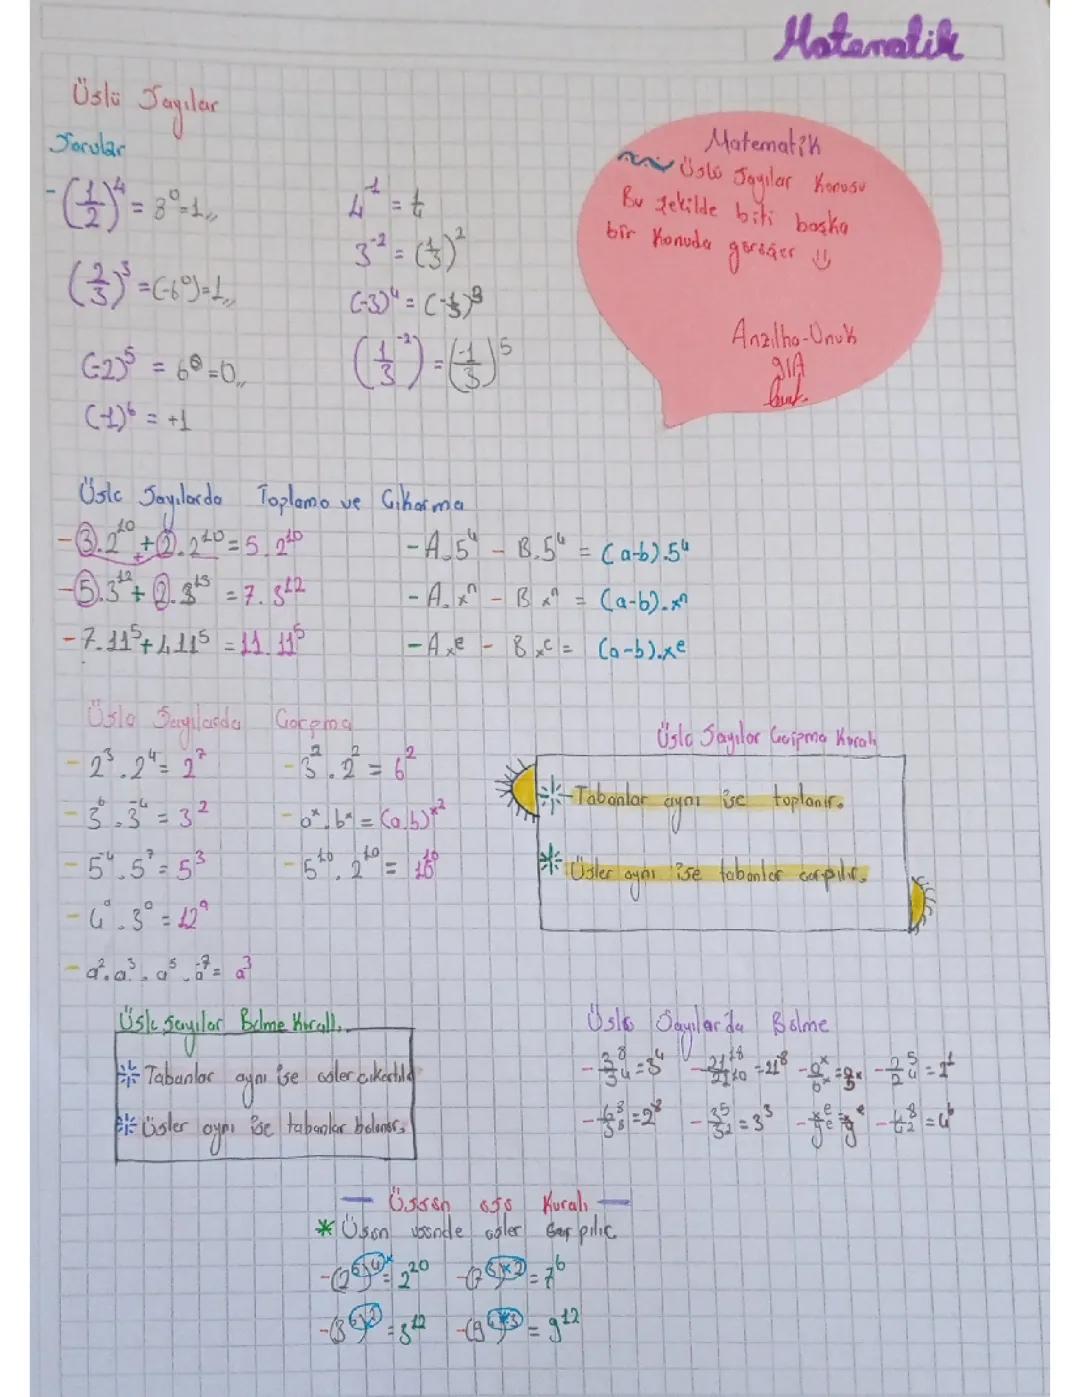 Matematik
Üslü Sayılar
Sorular
-(1/2)^4 = 8^0=1,,
(2/3)^3 =(-6^0)=1,,
(-2)^5 = 6^0=0,,
(-1)^6 = +1
4^-1 = t
3^-2 = (1/3)^2
Matematik
Üslü Sayılar Konusu
Bu şekilde biti başka
bir Konuda görüşer
Üslü Sayılarda Toplama ve Çıkarma
-3.2^10 + 2.2^10 = 5.2^10
-5.3^12 + 2.3^13 = 7.3^12
-7.11^5 + 4.11^5 = 11.11^5
-A.5^4 - B.5^4 = (a-b).5^4
-A.x^n - B x^n = (a-b).x^n
-A x^e - B x^c = (a-b).x^e
Üslü Sayılarda Çarpma
-2^3.2^4 = 2^7
-3^6.3^-4 = 3^2
-5^-4.5^7 = 5^3
-a^2.a^3.a^5.a^-7 = a^3
-3^2.2^2 = 6^2
-a^x.b^x = (a.b)^x^2
-5^10.2^10 = 10^10
Üslü Sayılar Çarpma Kuralı
Tabanlar aynı ise toplanır.
Üsler aynı ise tabanlar çarpılır.
Üslü Sayılar Bölme Kuralı.
Tabanlar aynı ise üsler çıkartılır
Üsler aynı ise tabanlar bölünür.
Üslü Sayılarda Bölme
-3^8/3^4 = 3^4 -21^18/21^10 = 21^8 -2^5/2^4 = 2^1
-6^8/3^8 = 2^8 -3^5/3^2 = 3^3
Üssün üssü Kuralı
* Üsün üssünde üsler çarpılır.
-(2^5)^4 = 2^20 -(7^3)^2 = 7^6
-(3^6)^2 = 3^12 -(9^4)^3 = 9^12